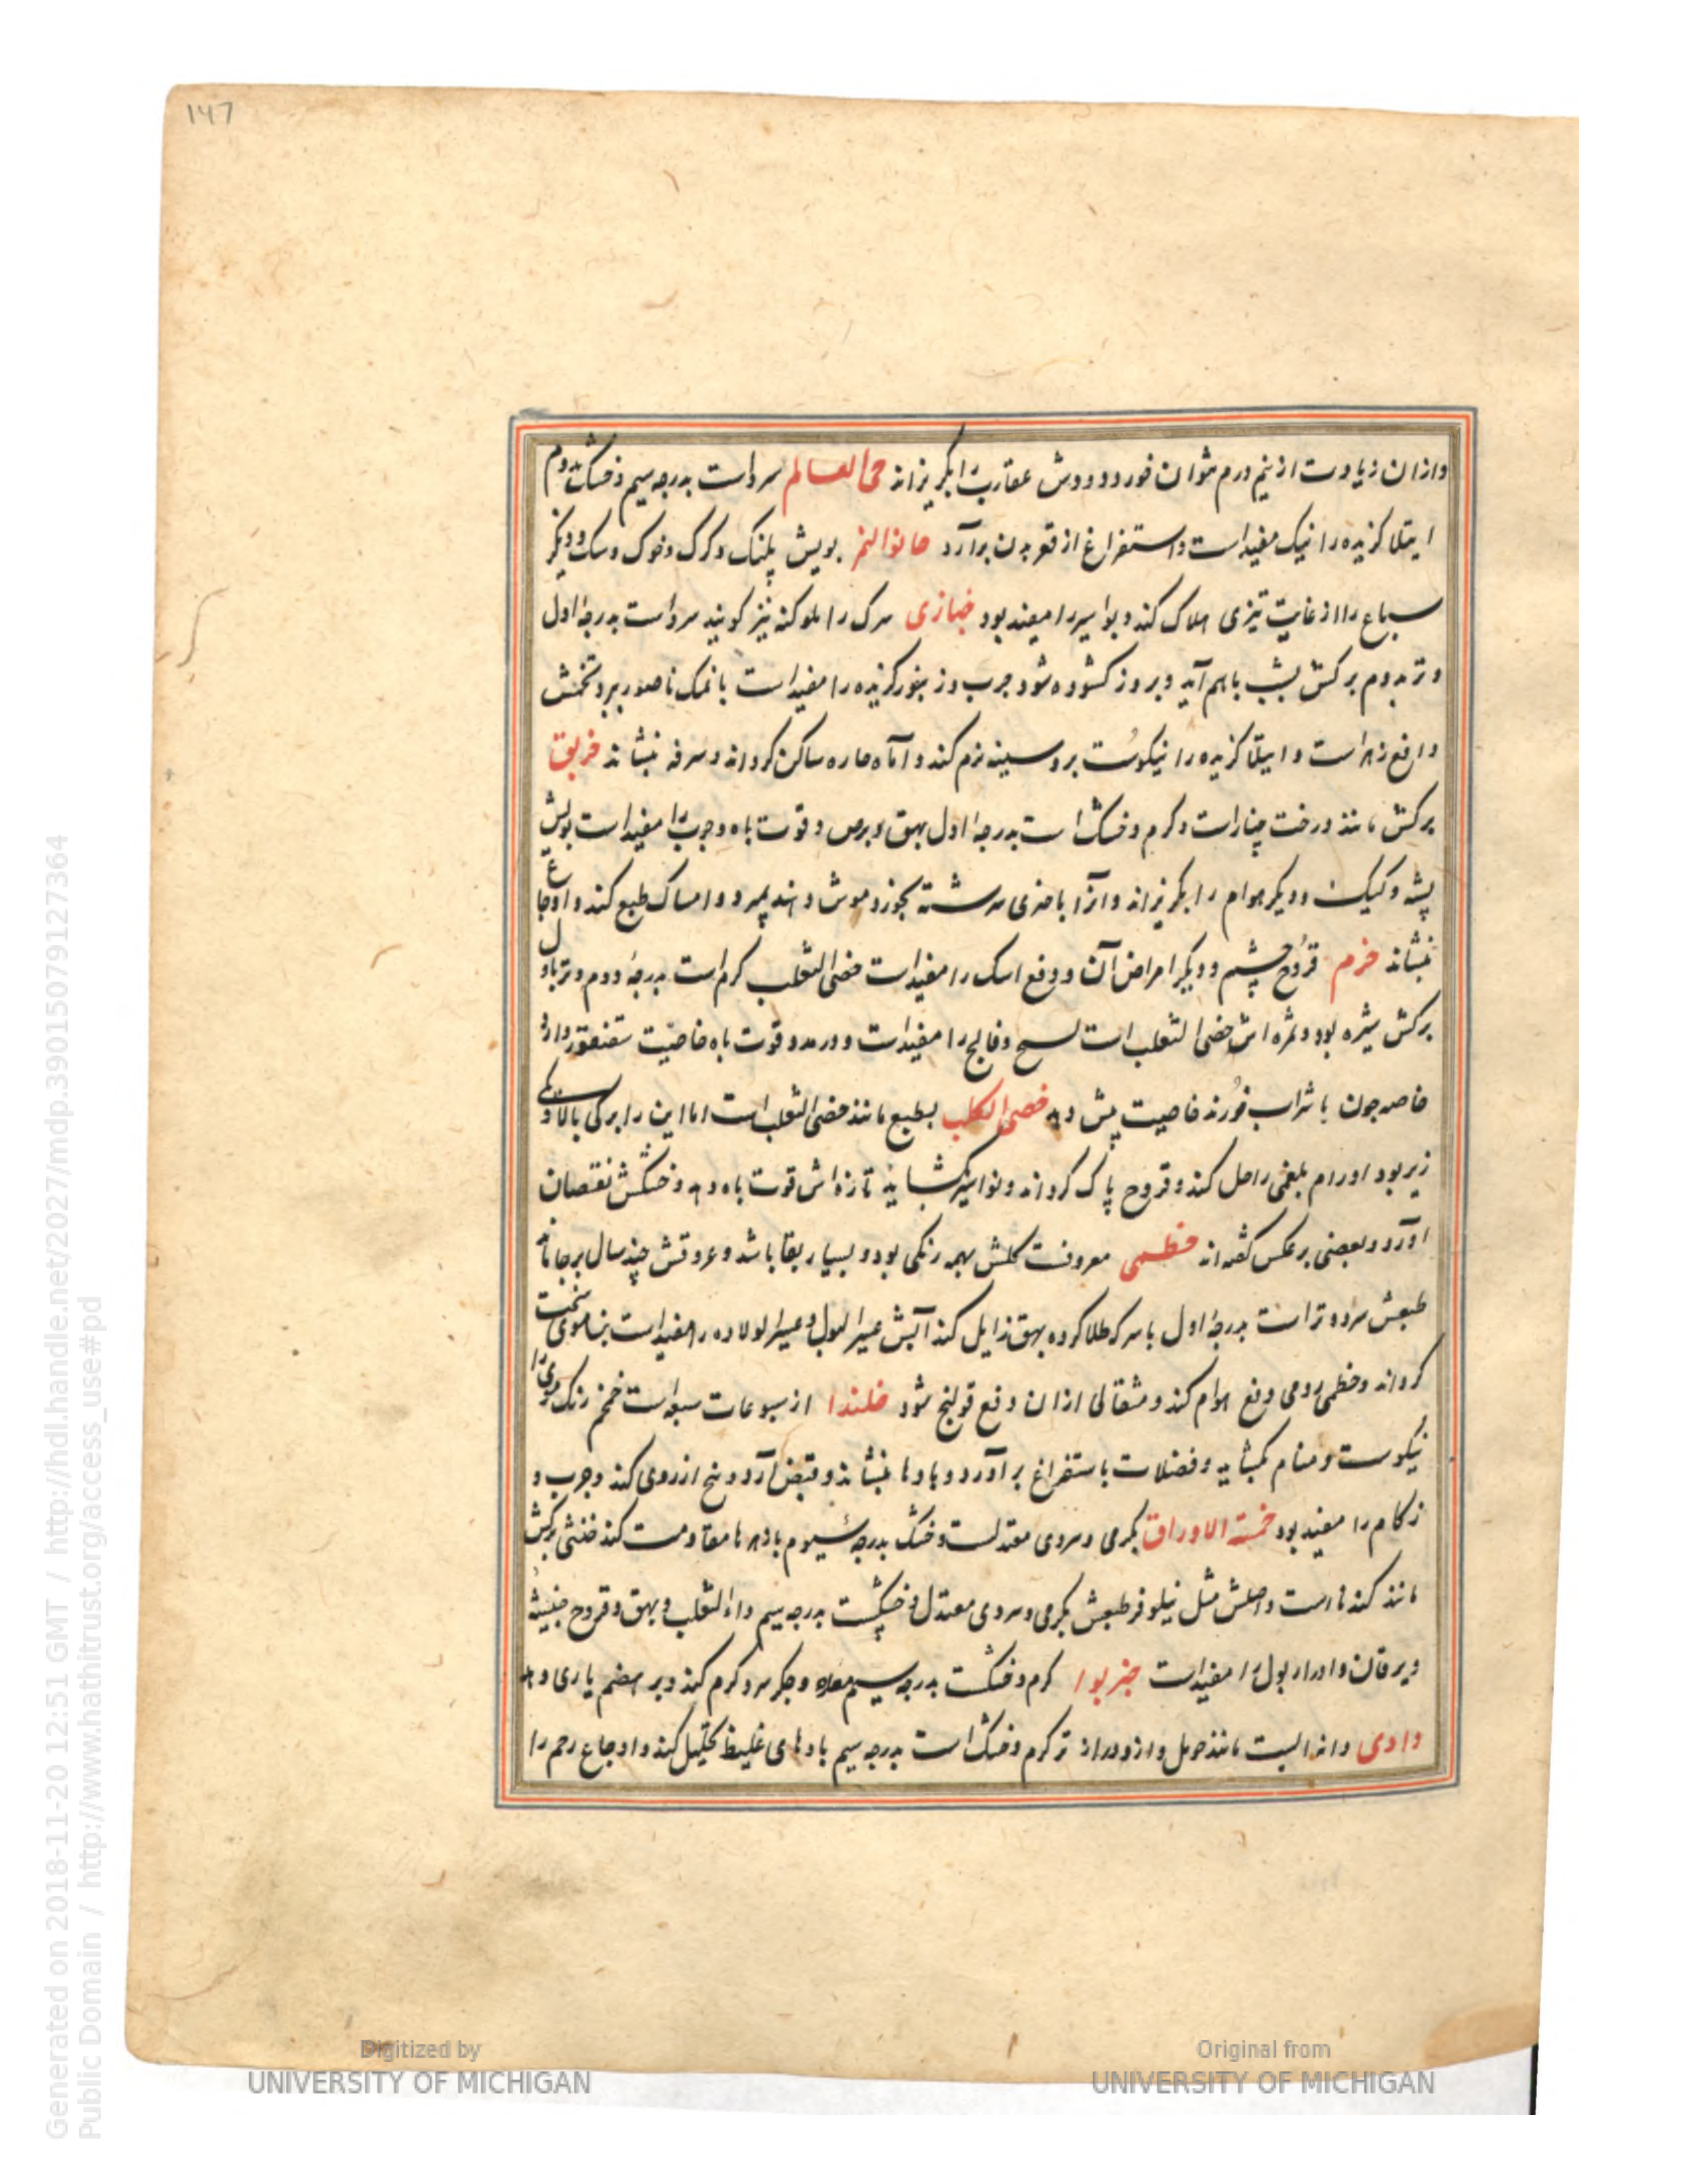 ۱۴۷
وازان زیادت از نیم درم نتوان خورد و دودش عقارب را بگریزاند حی العالم سردست بدرجه سیم و خشک بدوم
رتیلا گزیده را نیک مفیدست و استفراغ از قعر بدن برآرد خانق النمر بویش پلنک و کرک و خوک و سک و دیگر
سباع را از غایت تیزی هلاک کند و بواسیر را مفید بود خبازی سرک را ملوکیه نیز کویند سردست بدرجه اول
و تر بدوم برکش بشب باهم آید و بروز کشوده شود جرب و زنبور کزیده را مفیدست با نمک ناصور ببرد تخمش
دافع زهرست و رتیلا کزیده را نیکوست و سینه نرم کند و آماه حاره ساکن کرداند و سرفه بنشاند خربق
برکش مانند درخت چنارست و کرم و خشک است بدرجه اول بهق و برص و قوت باه و جرب را مفیدست بویش
پشه و کیک و دیگر هوام را بکریزاند و آنرا با سرشته بخورد موش دهند بمیرد و امساک طبع کند و اوجاع
بنشاند خرم قروح چشم و دیگر امراض آن و دفع را مفیدست خصی الثعلب کرم است بدرجه دوم و تر باول
برکش بود و ثمره اش خصی الثعلب است و فالج را مفیدست و در قوت باه خاصیت سقنقور دارد
خاصه چون با شراب خورند خاصیت بیش دهد خصی الکلب بطبع مانند خصی الثعلب است اما این را برکی بالا و
زیر بود اورام بلغمی را حل کند و قروح پاک کرداند و نواسیر بکشاید تازه اش قوت باه دهد و خشکش نقصان
آورد و بعضی برعکس گفته اند خطمی معروفست کلش بهمه رنکی بود و بسیار بقا باشد و عروقش چند سال برجا ماند
طبعش سرد و ترست بدرجه اول با سرکه طلا کرده بهق زایل کند آبش عسیر البول و عسیر الولاده را مفیدست موی سخت
کرداند و خطمی رومی دفع هوام کند و مثقالی ازان دفع قولنج شود خلندا از سبعه است رنک روی را
نیکوست و مسام بکشاید و فضلات باستفراغ برآورد و بادها بنشاند و قبض آرد و از روی کند و جرب و
زکام را مفید بود خمسة الاوراق بکرمی و سردی معتدلست و خشک بدرجه سیوم با زهرها مقاومت کند خنثی برکش
مانند کندناست و اصلش مثل نیلوفر طبعش بکرمی و سردی معتدل و خشکست بدرجه سیم داء الثعلب و بهق و قروح خبیثه
و یرقان و ادرار بول را مفیدست خیربوا کرم و خشکست بدرجه سیم معده و جکر سرد کرم کند و بر هضم یاری دهد
دادی دانه ایست مانند و ازو درازتر کرم و خشک است بدرجه سیم بادهای غلیظ تحلیل کند و اوجاع رحم را
Generated on 2018-11-20 12:51 GMT / http://hdl.handle.net/2027/mdp.39015079127364
Public Domain / http://www.hathitrust.org/access_use#pd
Digitized by
UNIVERSITY OF MICHIGAN
Original from
UNIVERSITY OF MICHIGAN